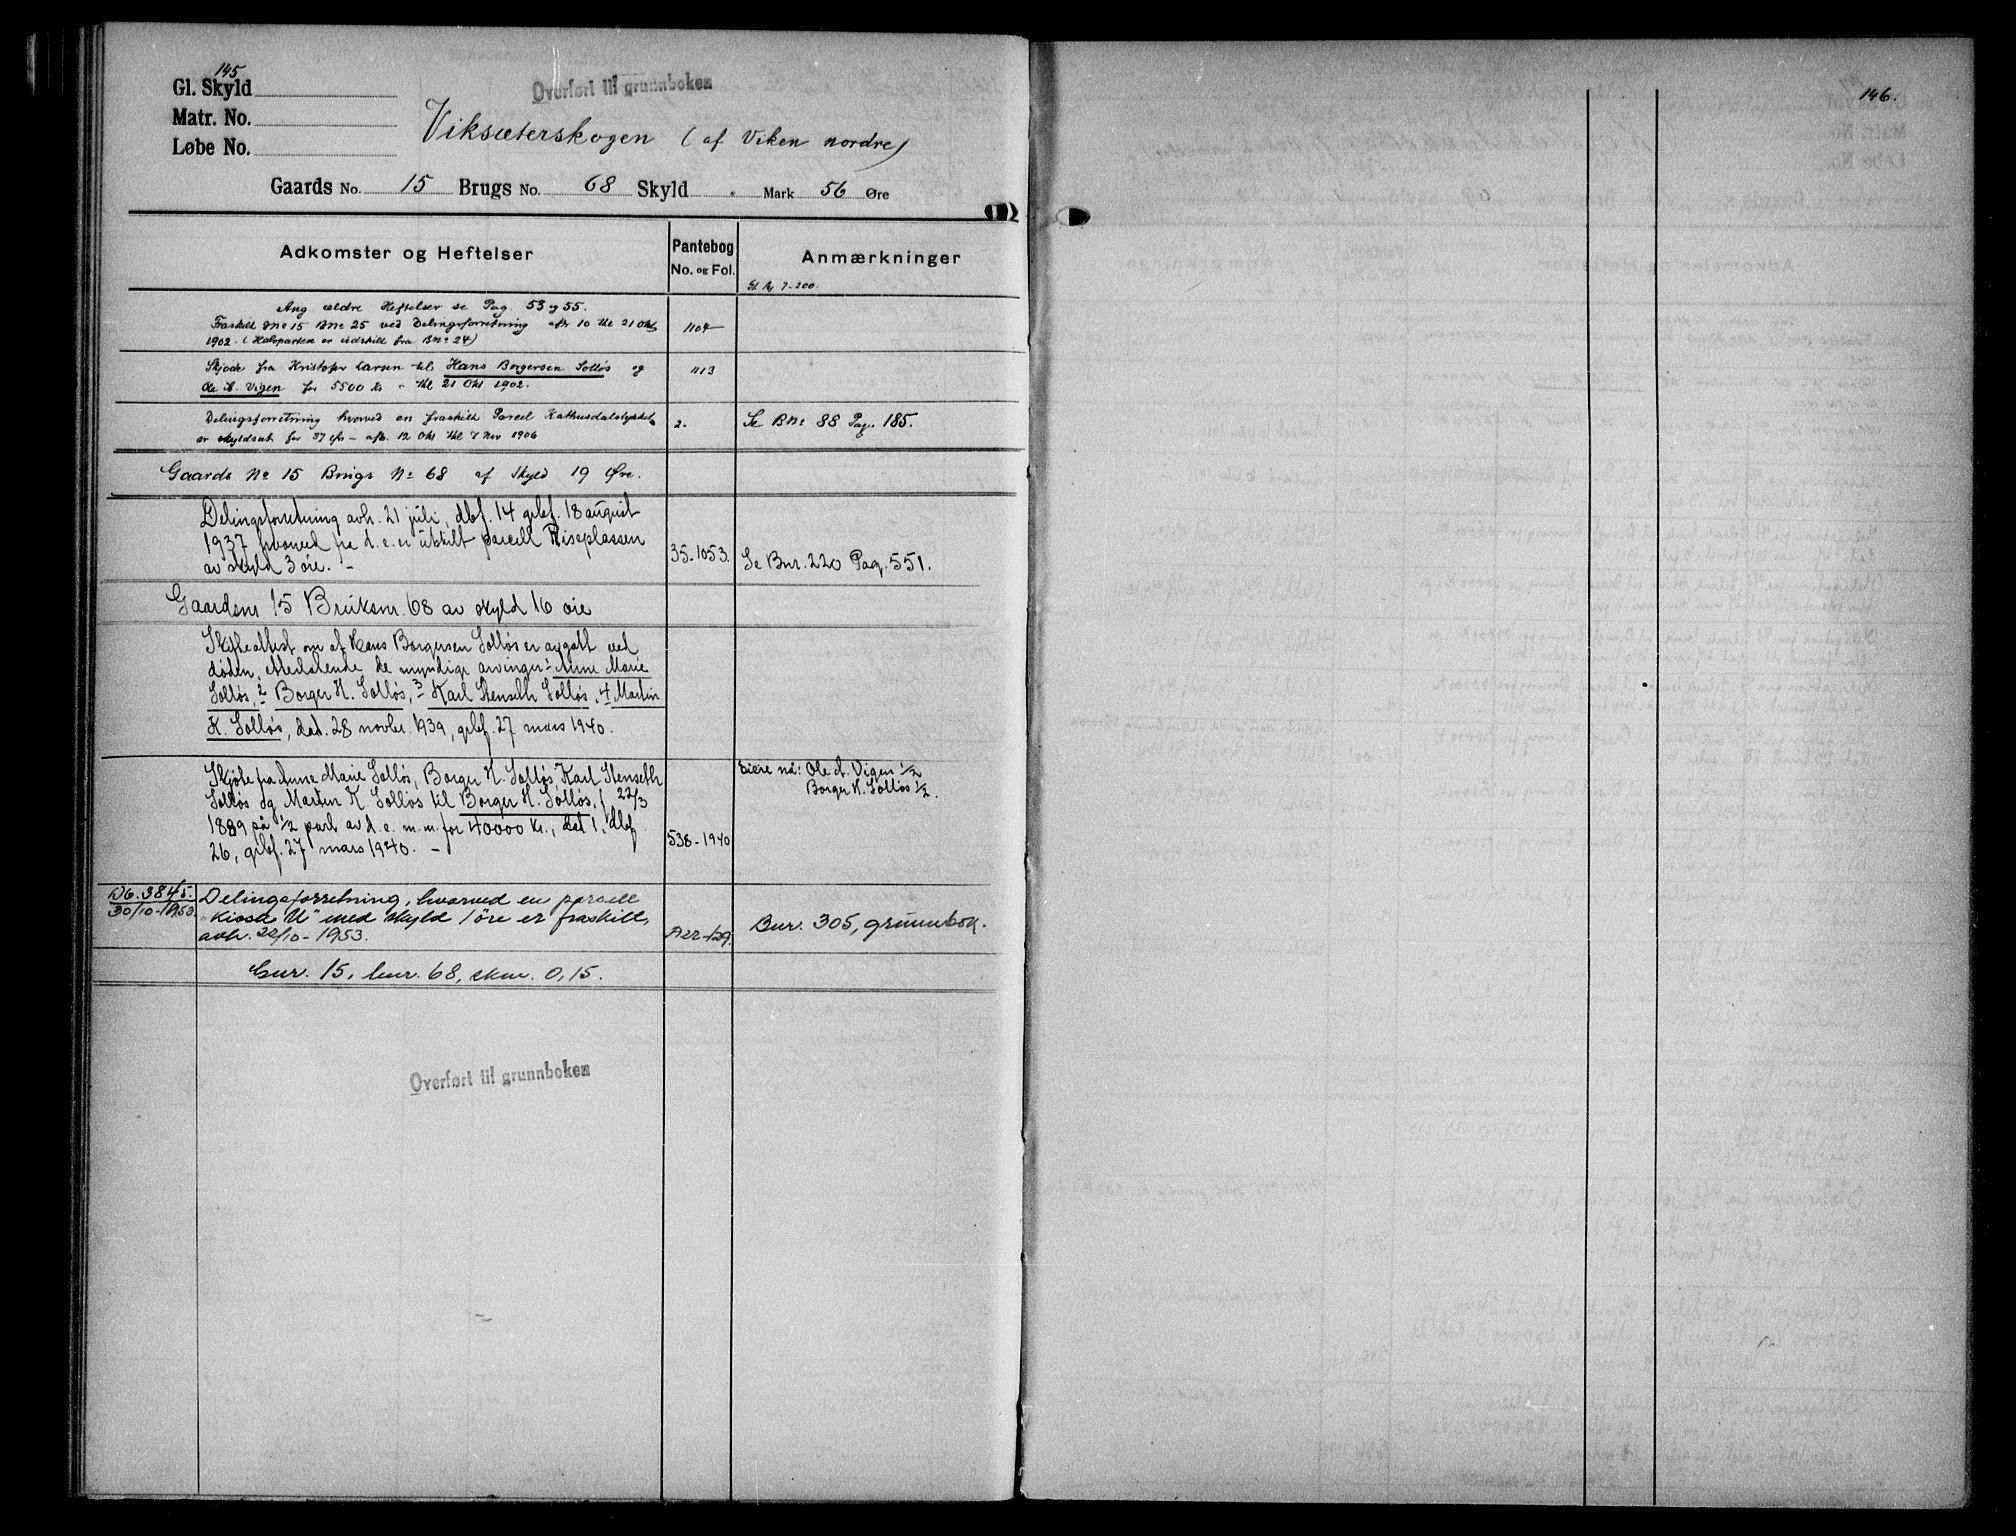 145
Gl. Skyld
Matr. No.
Løbe No.
Overført til grunnboken
Viksæterskogen (af Viken nordre)
Gaards No. 15 Brugs No. 68 Skyld " Mark 56 Øre
Adkomster og Heftelser
Pantebog
No. og Fol.
Anmærkninger
Ang ældre Heftelser se Pag. 53 og 55.
Fraskilt GNo 15 BNo 25 ved Delingsforretning afh 10 thl 21 Okt
1902. (Halvparten er udskilt fra BNo 24)
1104
Skjøde fra Kristofer Larsen til Hans Borgersen Solløs og
Ole A. Vigen for 5500 kr - thl 21 Okt 1902.
1113
Delingsforretning hvorved en fraskilt Parcel Kathusdalstykket
er skyldsat for 37 øre - afh. 12 Okt thl 7 Nov 1906
2.
Se BNo 88 Pag. 185.
Gaards No 15 Brugs No 68 af Skyld 19 Øre.
Delingsforretning avh. 21 juli, dbf. 14 grbf. 18 august
1937 hvorved fra d. e. er utskilt parcell Riseplassen
av skyld 3 øre. -
35-1053.
Se Bnr. 220 Pag. 551.
Gaardsnr 15 Bruksnr. 68 av skyld 16 øre
Skifteattest om at Hans Borgersen Solløs er avgått ved
døden, etterlatende de myndige arvinger: 1 Anne Marie
Solløs, 2 Borger H. Solløs, 3 Karl Stenseth Solløs, 4 Martin
K. Solløs, dad. 28 novbr. 1939, grbf. 27 mars 1940.
Skjøte fra Anne Marie Solløs, Borger H. Solløs, Karl Stenseth
Solløs og Martin K. Solløs til Borger H. Solløs, f 22/3
1889 på 1/2 part av d. e. m. m. for 40000 kr., dat 1, dbf
26, grbf. 27 mars 1940. -
538-1940
Eiere nå: Ole A. Vigen 1/2
Borger H. Solløs 1/2.
Db. 3845.
30/10-1953.
Delingsforretning, hvorved en parsell
"Kiosk U" med skyld 1 øre er fraskilt,
avh. 22/10-1953.
A22-129.
Bnr. 305, grunnbok.
Gnr. 15, bnr. 68, skm. 0,15.
Overført til grunnboken
146.